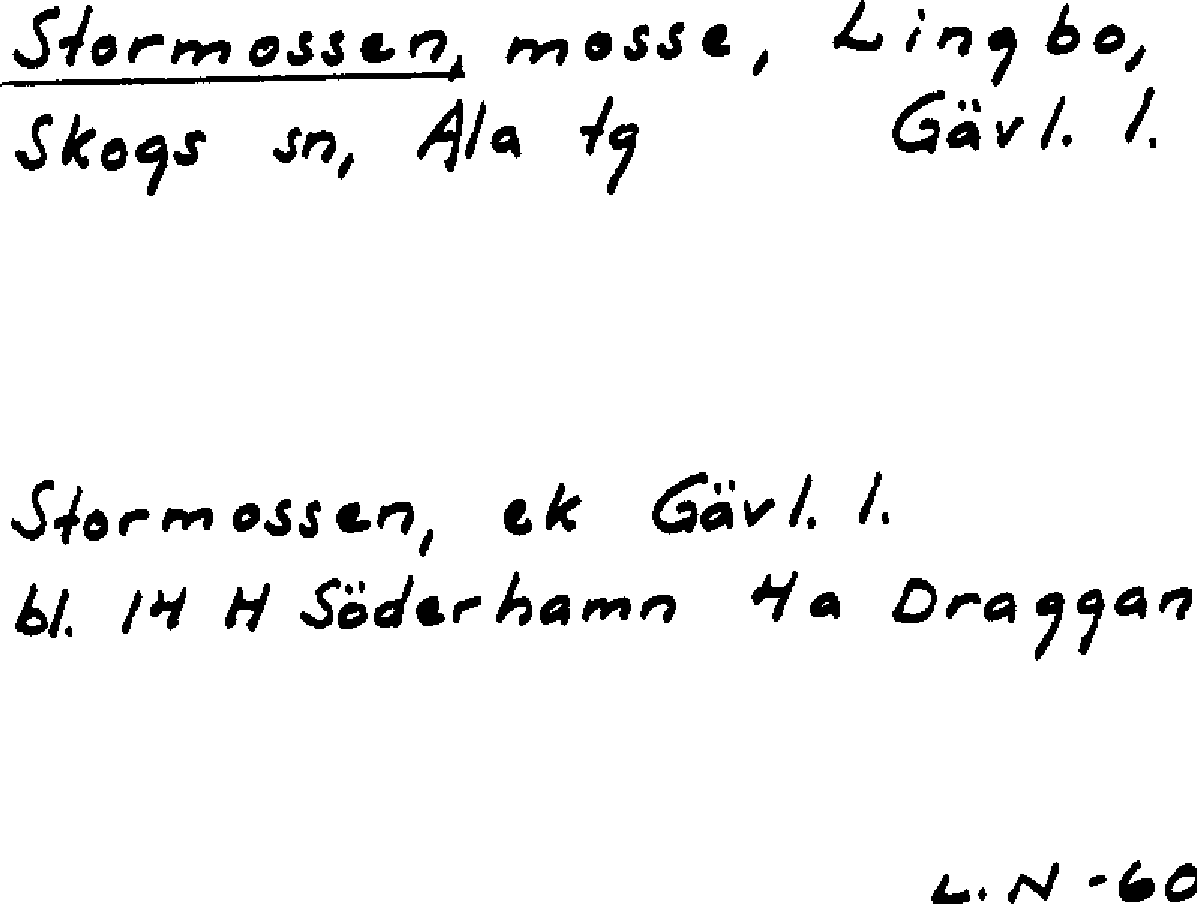 Stormossen, mosse, Lingbo,
Skogs sn, Ala tg Gävl. l.
Stormossen, ek Gävl. l.
bl. 14 H Söderhamn 4a Draggan
L. N -60